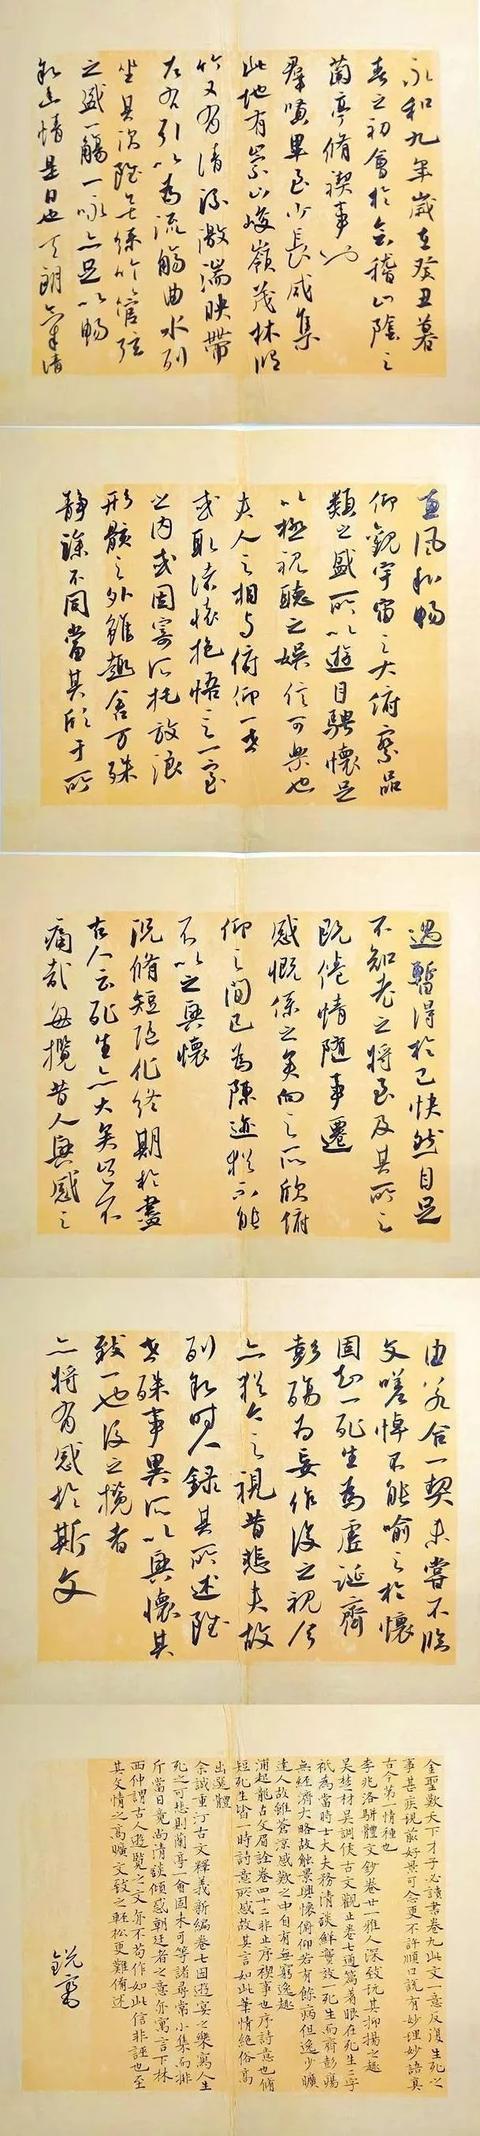 永和九年歲在癸丑暮
春之初會於會稽山陰之
蘭亭脩禊事也
羣賢畢至少長咸集
此地有崇山峻嶺茂林脩
竹又有清流激湍映帶
左右引以為流觴曲水列
坐其次雖無絲竹管弦
之盛一觴一詠亦足以暢
敘幽情是日也天朗氣清
惠風和暢
仰觀宇宙之大俯察品
類之盛所以遊目騁懷足
以極視聽之娛信可樂也
夫人之相與俯仰一世
或取諸懷抱悟言一室
之內或因寄所托放浪
形骸之外雖趣舍萬殊
靜躁不同當其欣于所
遇暫得於己快然自足
不知老之將至及其所之
既倦情隨事遷
感慨係之矣向之所欣俯
仰之間已為陳迹猶不能
不以之興懷
況脩短隨化終期於盡
古人云死生亦大矣豈不
痛哉每攬昔人興感之
由若合一契未嘗不臨
文嗟悼不能喻之於懷
固知一死生為虛誕齊
彭殤為妄作後之視今
亦猶今之視昔悲夫故
列敘時人錄其所述雖
世殊事異所以興懷其
致一也後之攬者
亦將有感於斯文
金聖歎天下才子必讀書卷九此文一意反復生死之
事甚疾現前好景可念更不許順口說有妙理妙語真
古今第一情種也
李兆洛駢體文鈔卷廿一雅人深致玩其抑揚之趣
吳楚材吳調侯古文觀止卷七通篇著眼在死生二字
祇為當時士大夫務清談鮮實效一死生而齊彭殤
無經濟大略故觸景興懷俯仰若有餘痛但逸少曠
達人故雖蒼涼感歎之中自有無窮逸趣
浦起龍古文眉詮卷四十二非止序禊事也序詩意也脩
短死生皆一時詩意所感故其言如此筆情絕俗高
出選體
余誠重訂古文釋義新編卷七因遊宴之樂寫人生
死之可悲則蘭亭一會固未可等諸尋常小集而排
斥當日竟尚清談傾惑朝廷者之意亦寓言下林
西仲謂古人遊覽之文亦不苟作如此信非誣也至
其文情之高曠文致之輕松更難備述